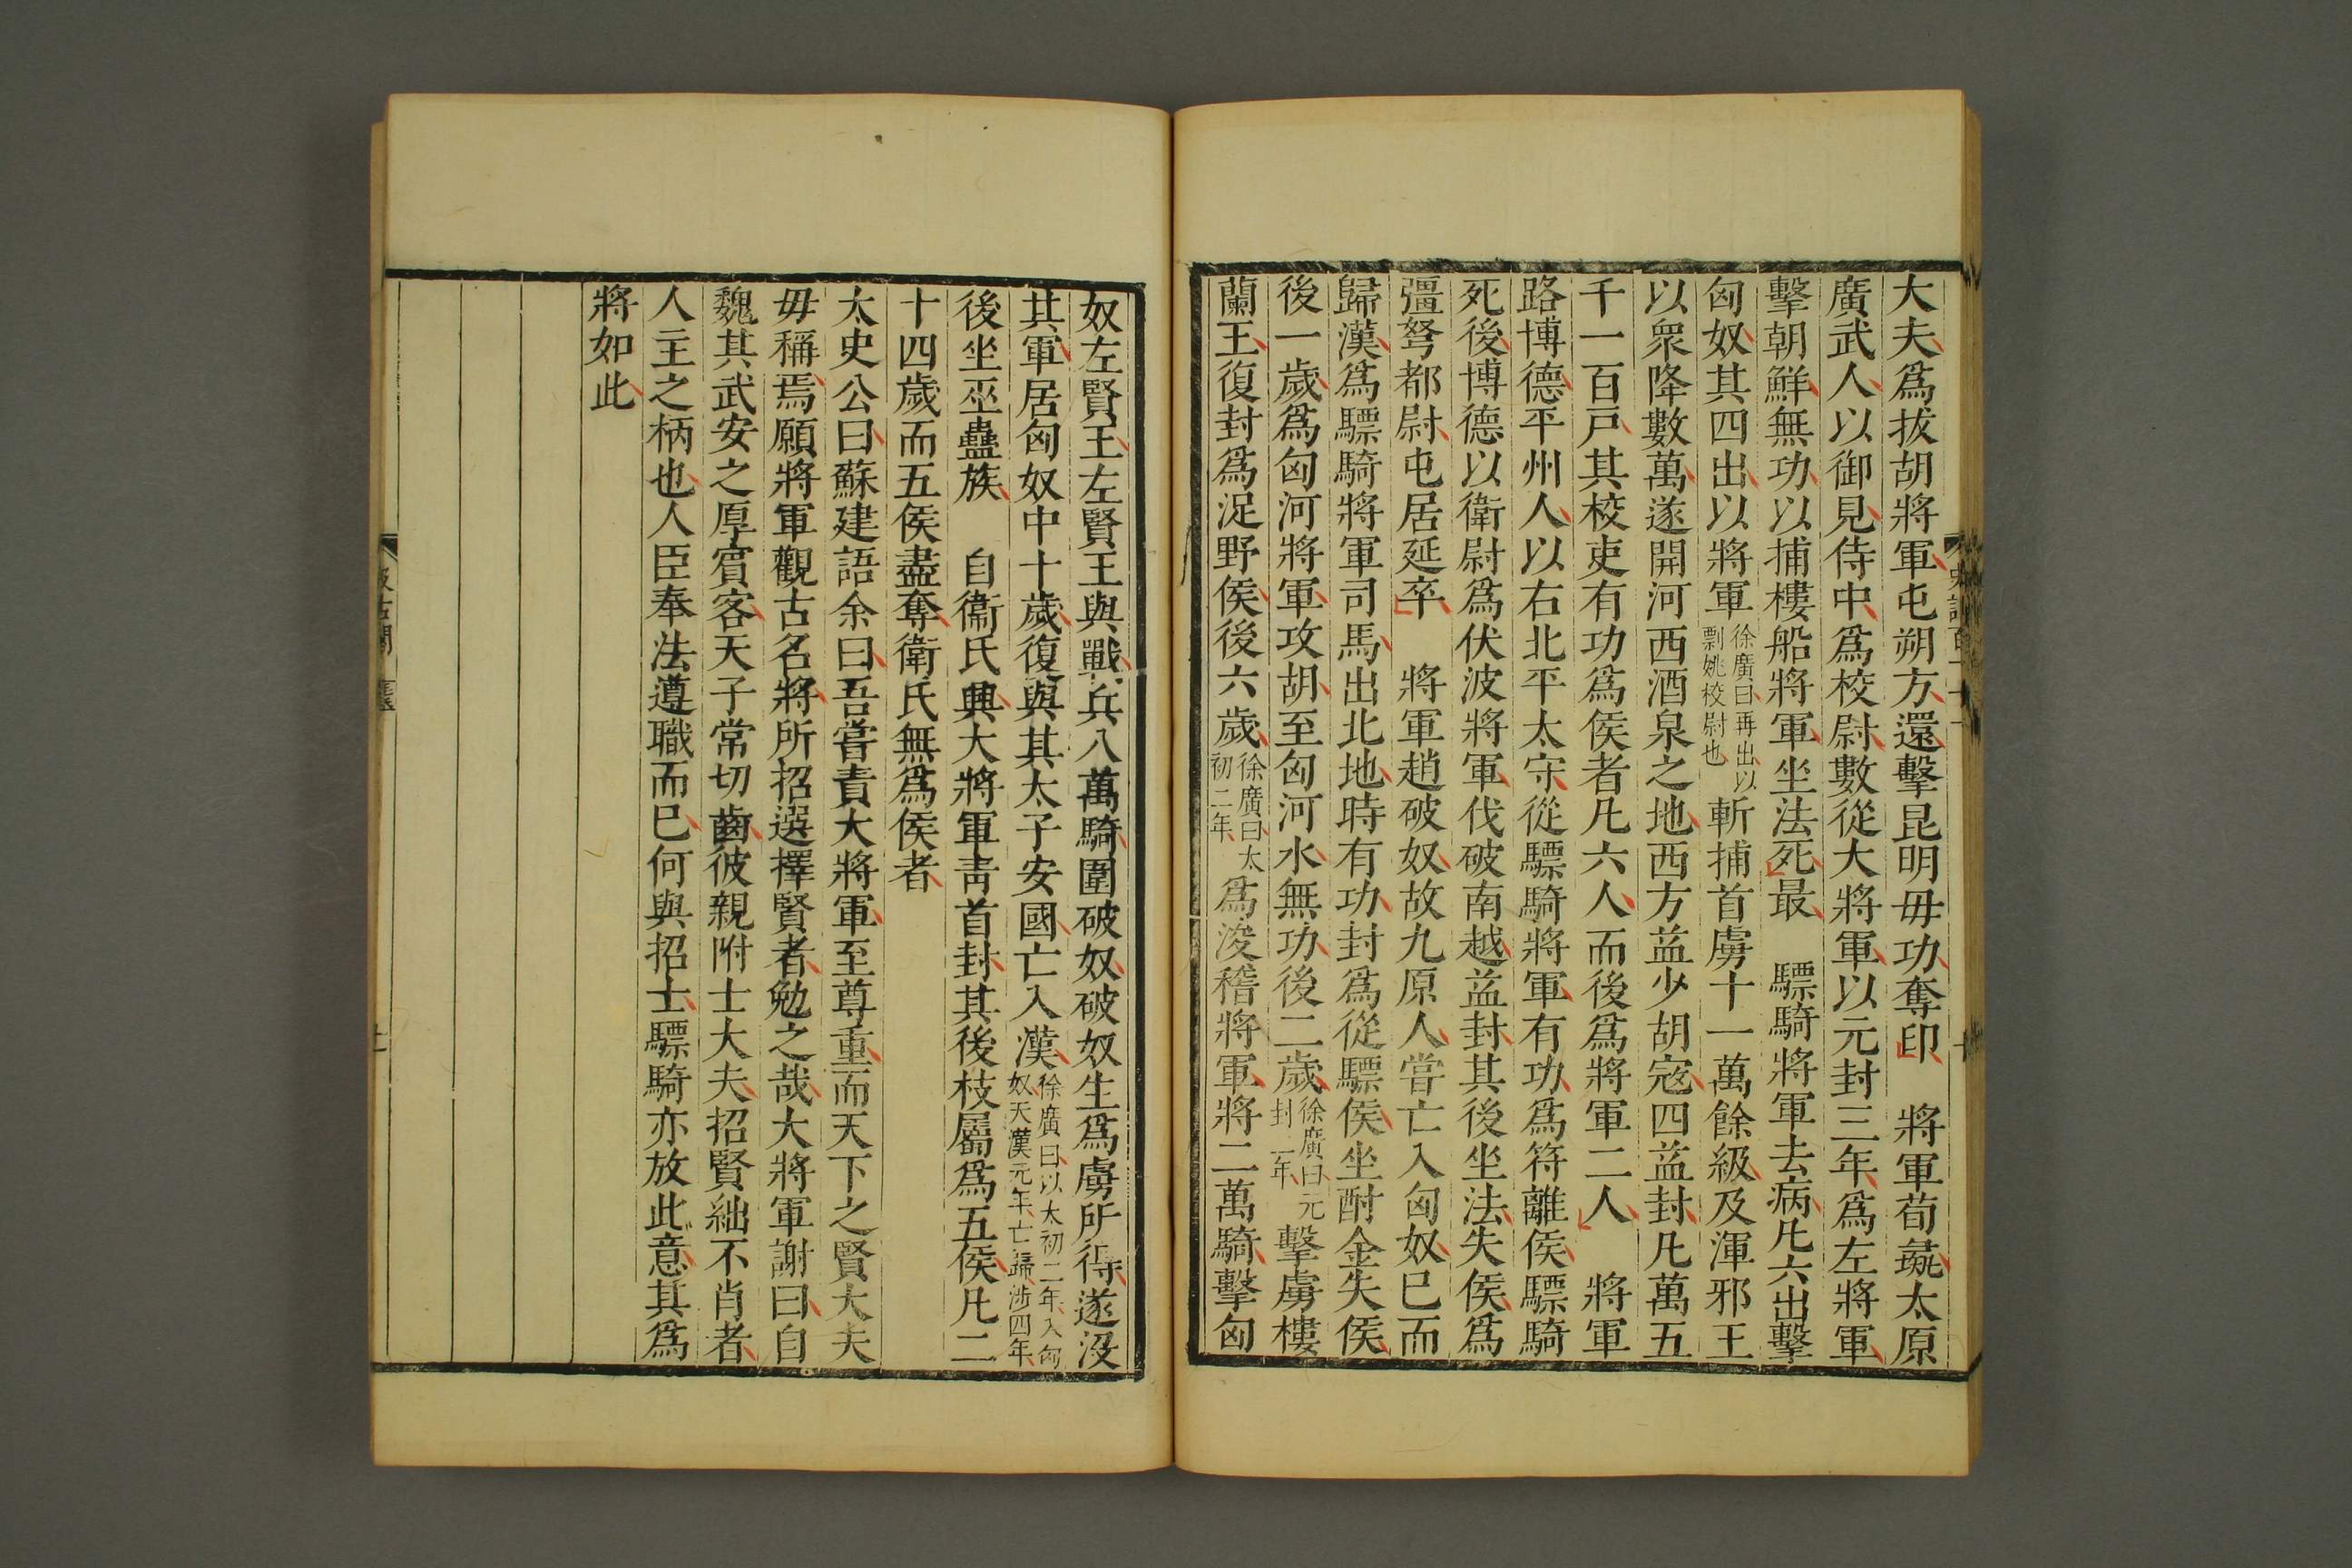 大夫爲拔胡將軍屯朔方還擊昆明毋功奪印　將軍荀彘太原
廣武人以御見侍中爲校尉數從大將軍以元封三年爲左將軍
擊朝鮮無功以捕樓船將軍坐法死最　驃騎將軍去病凡六出擊
匈奴其四出以將軍徐廣曰再出以剽姚校尉也斬捕首虜十一萬餘級及渾邪王
以眾降數萬遂開河西酒泉之地西方益少胡寇四益封凡萬五
千一百戸其校吏有功爲侯者凡六人而後爲將軍二人　將軍
路博德平州人以右北平太守從驃騎將軍有功爲符離侯驃騎
死後博德以衛尉爲伏波將軍伐破南越益封其後坐法失侯爲
彊弩都尉屯居延卒　將軍趙破奴故九原人嘗亡入匈奴已而
歸漢爲驃騎將軍司馬出北地時有功封爲從驃侯坐酎金失侯
後一歲爲匈河將軍攻胡至匈河水無功後二歲徐廣曰元封二年擊虜樓
蘭王復封爲浞野侯後六歲徐廣曰太初二年爲浚稽將軍將二萬騎擊匈
奴左賢王左賢王與戰兵八萬騎圍破奴破奴生爲虜所得遂沒
其軍居匈奴中十歲復與其太子安國亡入漢徐廣曰以太初二年入匈奴天漢元年亡歸涉四年
後坐巫蠱族　自衞氏興大將軍青首封其後枝屬爲五侯凡二
十四歲而五侯盡奪衛氏無爲侯者
太史公曰蘇建語余曰吾嘗責大將軍至尊重而天下之賢大夫
毋稱焉願將軍觀古名將所招選擇賢者勉之哉大將軍謝曰自
魏其武安之厚賓客天子常切齒彼親附士大夫招賢絀不肖者
人主之柄也人臣奉法遵職而已何與招士驃騎亦放此意其爲
將如此